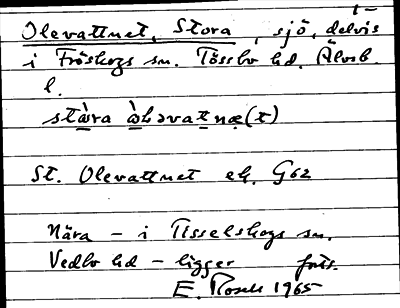 Olevattnet, Stora, sjö, delvis
i Fröskogs sn. Tössbo hd. Älvsb.
l.
stᴀ̀ra ὼləvatnæ(t)
St. Olevattnet ek. G62
Nära – i Tisselskogs sn.
Vedbo hd – ligger
E. 1965